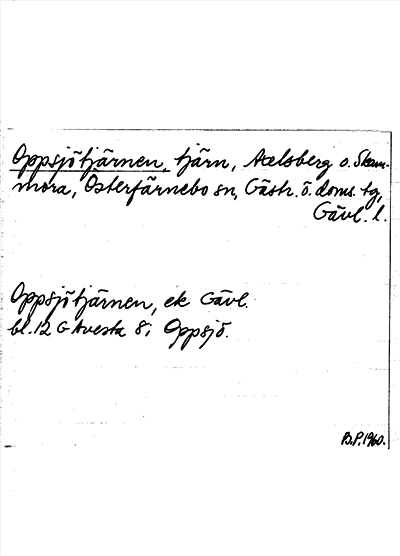 Oppsjötjärnen, tjärn, Axelsberg o. Skam-
mora, Österfärnebo sn, Gästr. ö. doms. tg,
Gävl. l.
Oppsjötjärnen, ek Gävl.
bl. 12 G Avesta 8i Oppsjö.
B.P. 1960.